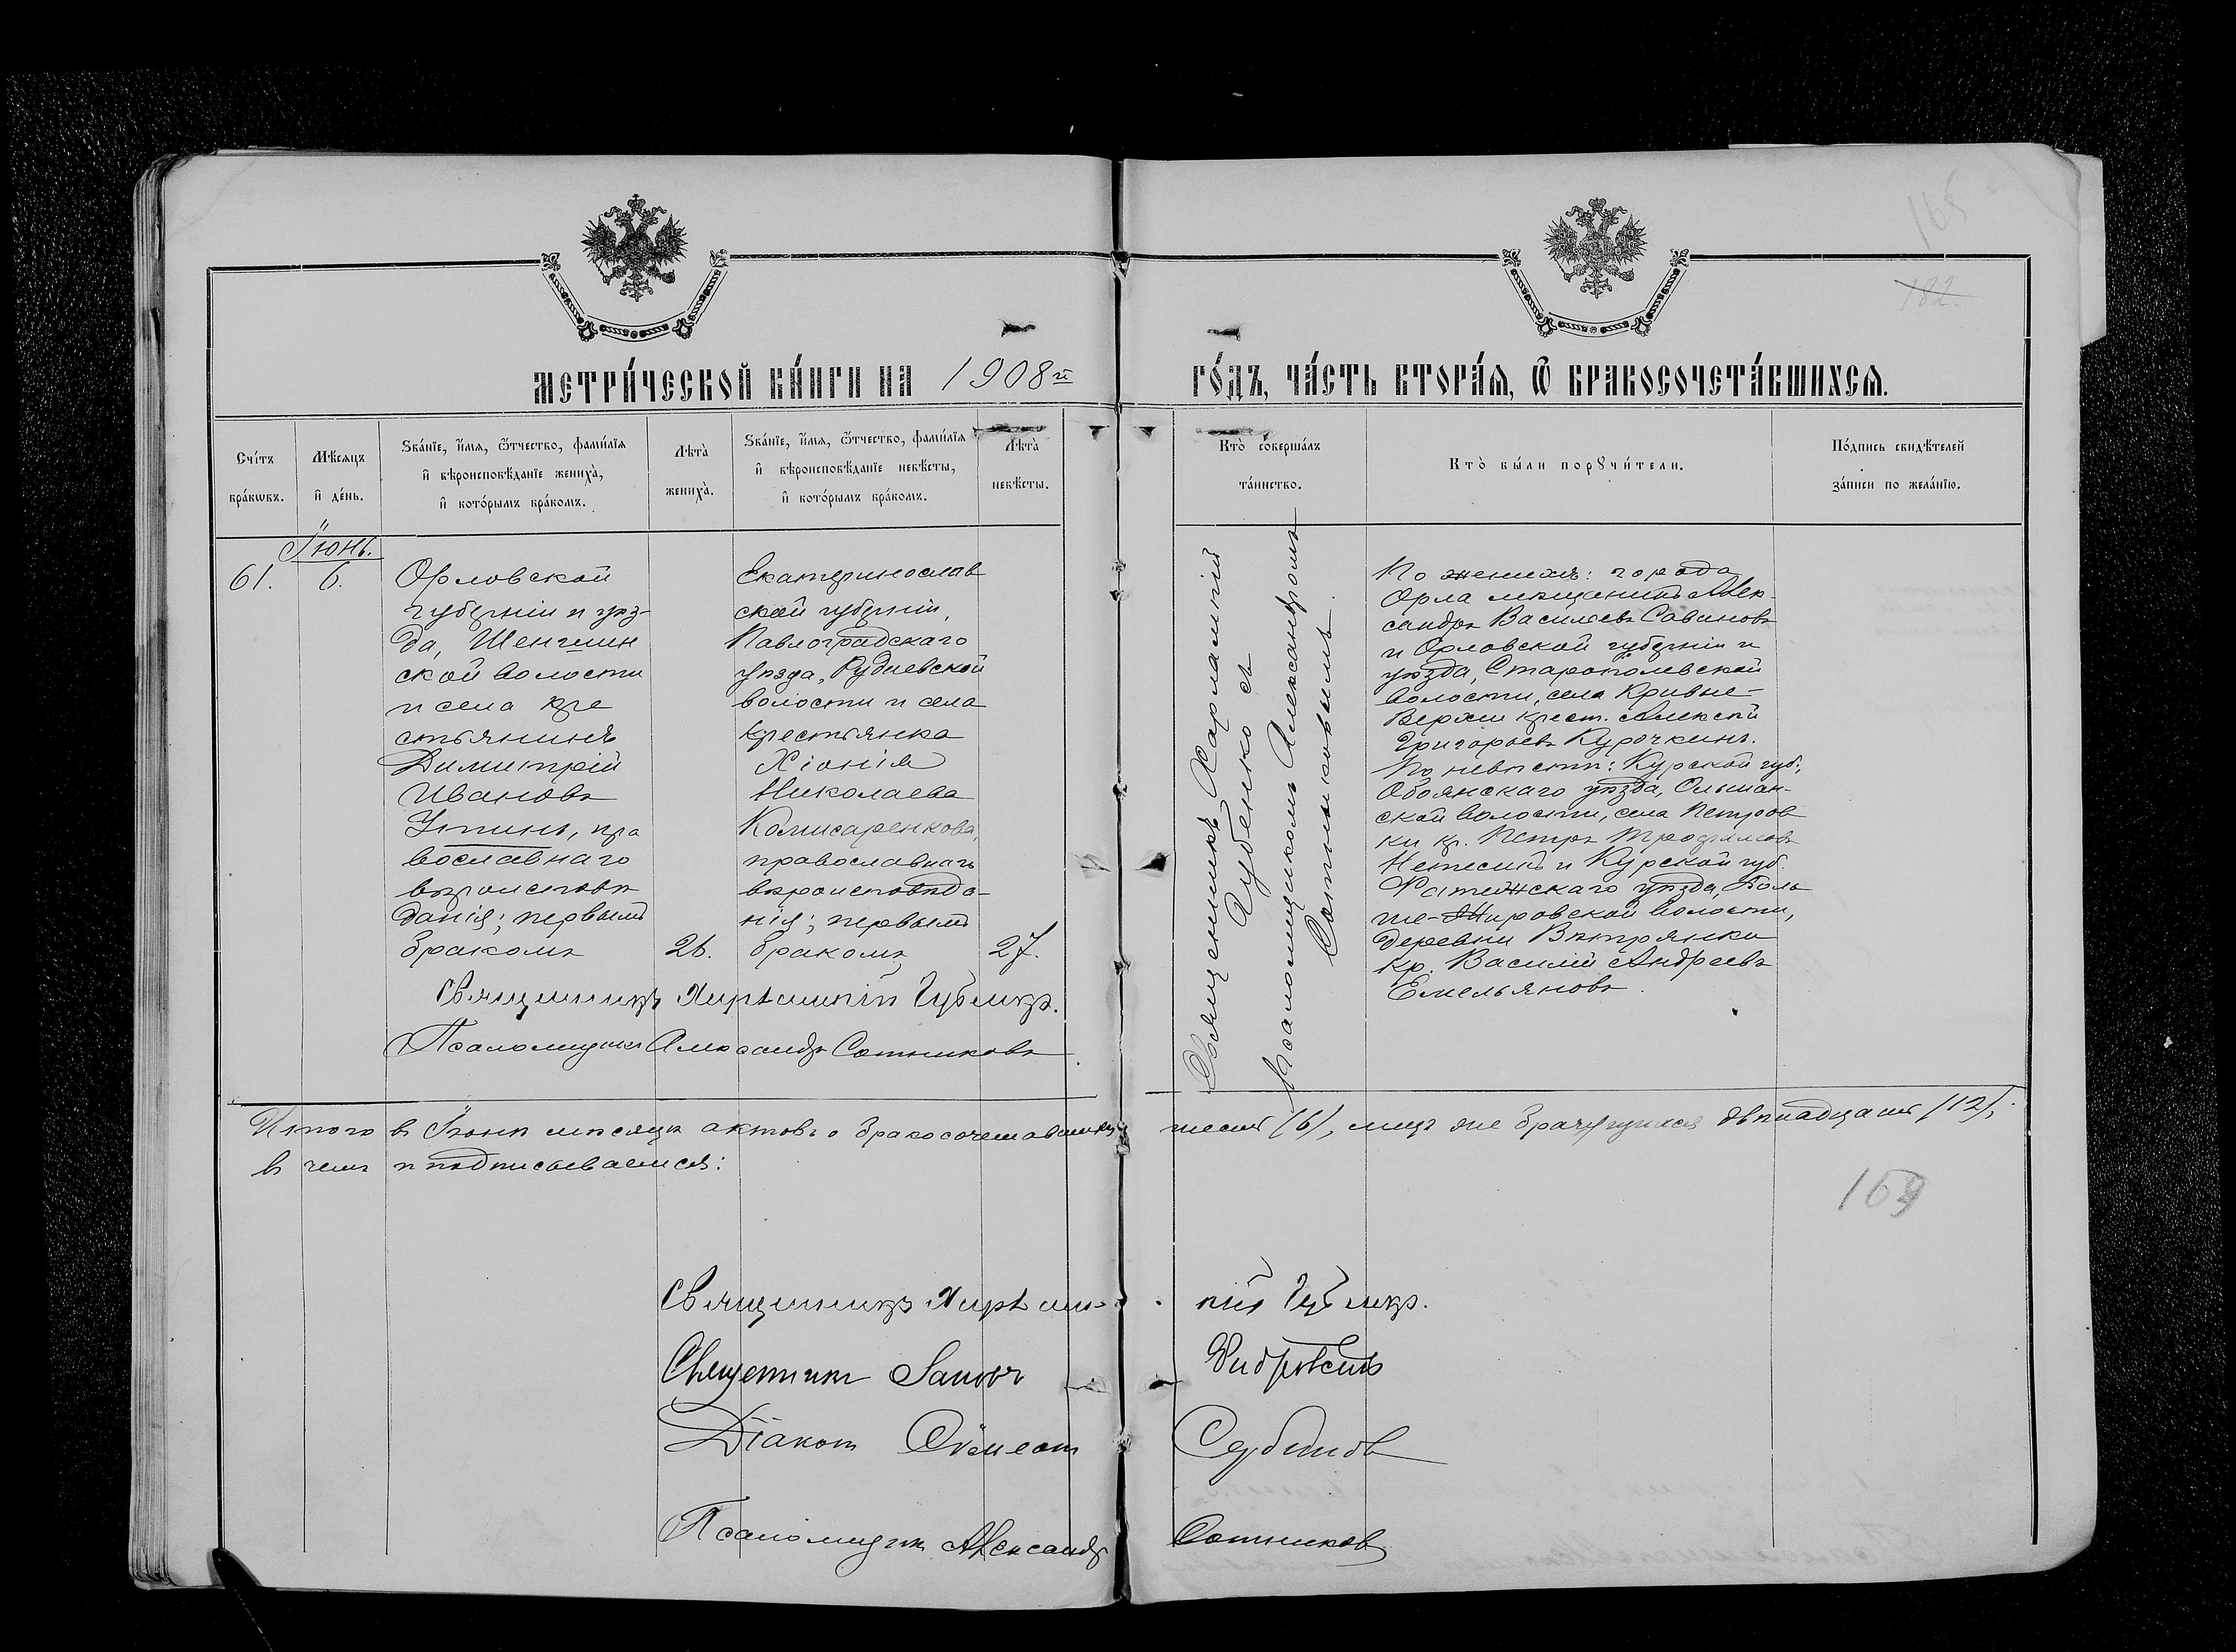 165
182.
МЕТРИ́ЧЕСКОЙ КНИ́ГИ НА 1908й ГО́ДЪ, ЧА́СТЬ ВТОРА́Я, Ѿ БРАКОСОЧЕТА́ВШИХСЯ.
Сче́тъ бра́кѡвъ.
Мѣ́сяцъ и де́нь.
Зва́нїе, и́мя, ѻ҆́тчество, фами́лїя
и҆ вѣроисповѣ́данїе жениха̀,
и҆ кото́рымъ бра́комъ.
Лѣта̀
жениха̀.
Зва́нїе, и́мя, ѻ҆́тчество, фами́лїя
и҆ вѣроисповѣ́данїе невѣ́сты,
и҆ кото́рымъ бра́комъ.
Лѣта̀
невѣ́сты.
Кто̀ соверша́лъ
та́инство.
Кто̀ бы́ли порꙋчи́тели.
По́дпись свидѣ́телей
за́писи по жела́нїю.
Іюнь.
61. 6.
Орловской
губерніи и уѣз-
да, Шен
ской волости
и села кре
стьянинъ
Димитрій
Ивановъ
Утинъ, пра
вославнаго
вѣроисповѣ
данія; первымъ
бракомъ
26.
Екатеринослав
ской губерніи,
Павлоградскаго
уѣзда, Рудневской
волости и села
крестьянка
Хіонія
Николаева
Комисаренкова,
православнаго
вѣроисповѣда-
нія; первымъ
бракомъ
27.
Священникъ Харлампій
Губенко съ
Псаломщикомъ Александромъ
Сотниковымъ.
По женихѣ: города
Орла мѣщанинъ Алек-
сандръ Васильевъ Савиновъ
и Орловской губерніи и
уѣзда, Старопольевской
волости, села Кривые-
Верхи крест. Алексѣй
Григорьевъ Курочкинъ.
По невѣстѣ: Курской губ.,
Обоянскаго уѣзда, Ольшан-
ской волости, села Петров
ки кр. Петръ Трофимовъ
и Курской губ.
Фатежскаго уѣзда, Боль
ше-Жировской волости,
деревни Вѣтрянки
кр. Василій Андреевъ
Емельяновъ.
Священникъ Харлампій Губенко.
Псаломщикъ Александръ Сотниковъ
Итого въ Іюнѣ мѣсяцѣ актовъ о бракосочетавшихся шесть (6), лицъ же брачущихся двѣнадцать (12),
въ чемъ и подписываемся:
169
Священникъ Харлампій Губенко.
Священникъ
Діаконъ Симеонъ Сербинов
Псаломщик Александр Сотников